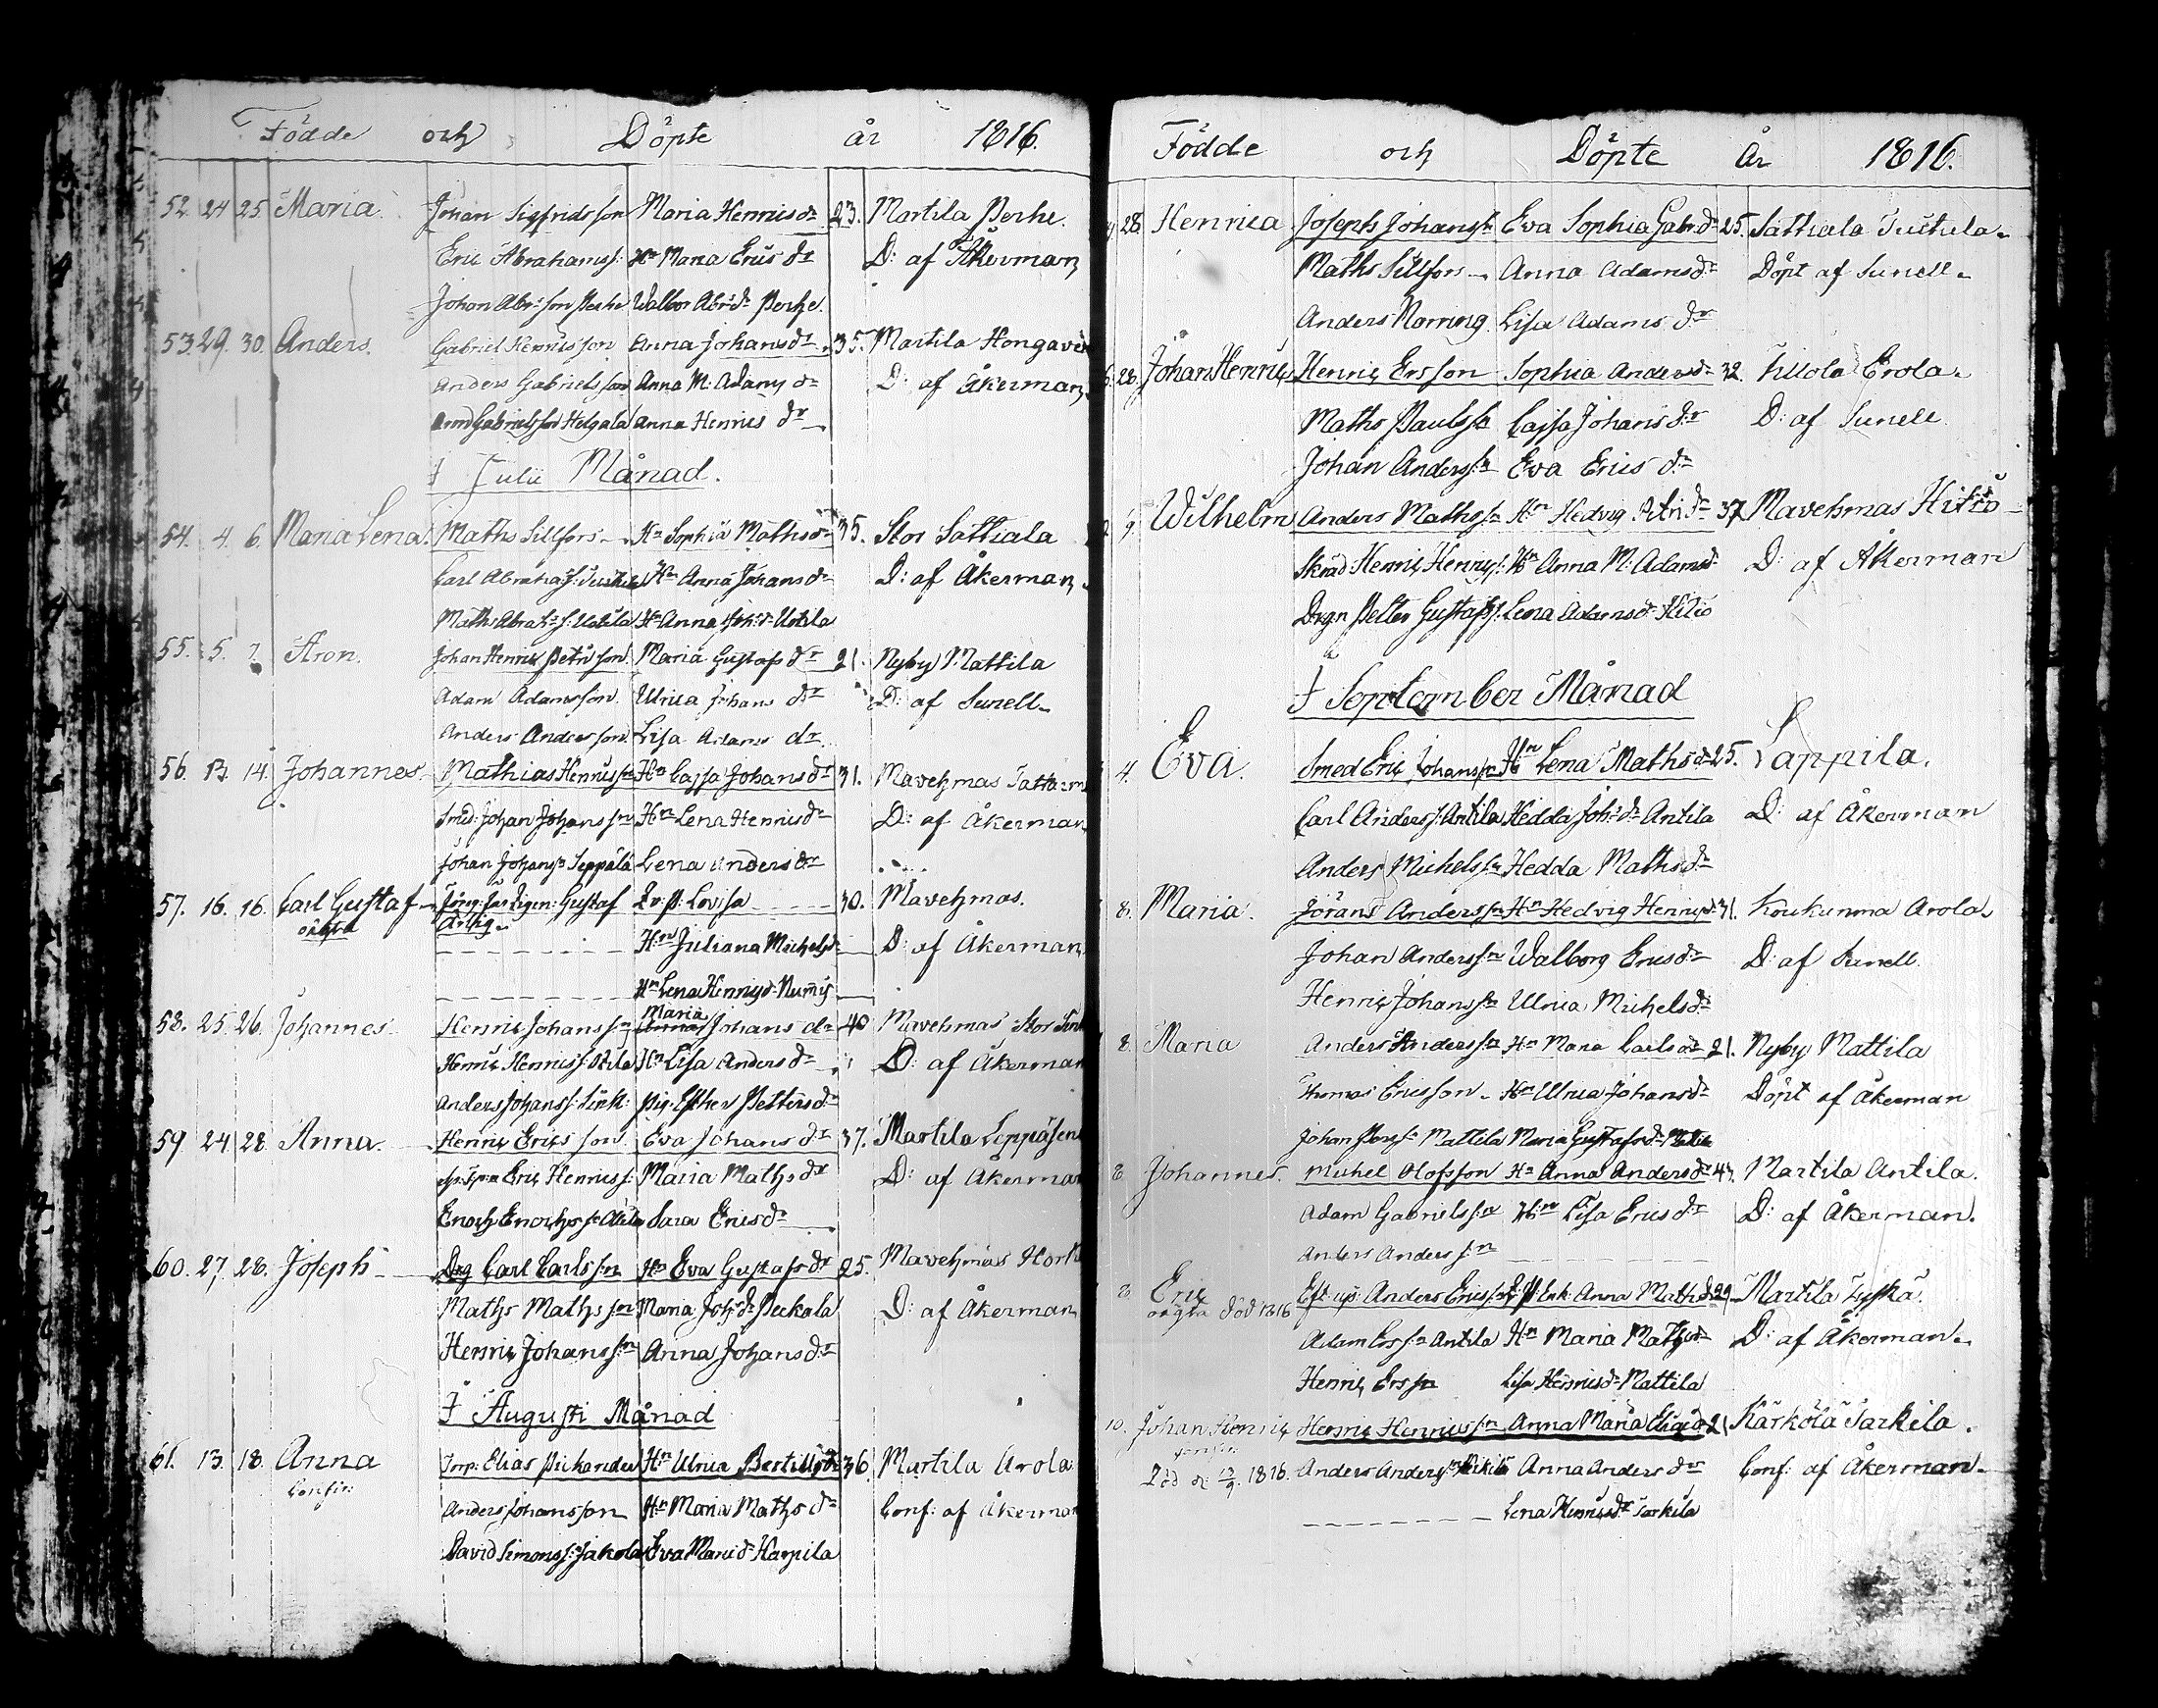 Födde och Döpte år 1816.
52. 24 25 Maria. Johan Sigfridsson Maria Henricsdr 23. Martila Perhe.
Eric Abrahamss: Hu Maria Erics dr D: af Åkerman
Johan Abr:son Perhe Walbor Abr:dr Perhe.
53. 29. 30. Anders. Gabriel Henricsson Anna Johansdr 35. Martila Hongavis
Anders Gabrielsson Anna M: Adams dr D: af Åkerman
Gabrielsson Helgala Anna Henrics dr
I Julii Månad.
54. 4. 6. Maria Lena. Maths Sillfors Hu Sophia Mathsdr 35. Stor Sattiala
Carl Abrahas: Hu Anna Johansdr D: af Åkerman
Maths Abrah: s: Uotila Hu Anna Joh:dr Uotila
55. 5. 7. Aron. Johan Henric Petrisson Maria Gustafsdr 21. Nyby Mattila
Adam Adamsson. Ulrica Johans dr D: af Sunell
Anders Andersson. Lisa Adams dr.
56. 13. 14. Johannes. Mathias Henricssn Hn Cajsa Johansdr 31. Mavehmas
Smed: Johan Johanssn Hn Lena Henricsdr D: af Åkerman
Johan Johanss Seppälä Lena Andersdr
57. 16. 16. Carl Gustaf Gustaf L:v:p: Lovisa 30. Mavehmas.
oägta Hn Juliana Michelsdr D: af Åkerman
Hn Lena Henricsd: Numis
Maria
58. 25. 26. Johannes Henric Johanssn Johans dr 40 Mavehmas Stor
Henric Henricss: Hn Lisa Andersdr D: af Åkerman
Anders Johanss: Pig: Esther Pettersdr
59 24 28. Anna. Henric Erics son. Eva Johans dr 37. Martila Leppäsen
Eric Henricss: Maria Maths dr D: af Åkerman
Enoch Enochs Sara Ericsdr
60. 27. 28. Joseph Drg Carl Carlssn Hn Eva Gustafsdr 25. Mavehmas
Maths Mathssn Maria Joh:dr Peckala D: af Åkerman
Henric Johanssn Anna Johansdr
I Augusti Månad
61. 13. 18. Anna Elias Pickander Hn Ulrica Bertilsdr 36. Martila Arola
Confir: Anders Johansson Hn Maria Maths dr Conf: af Åkerman
David Simonss: Jakola Eva Maridr Harpila
Födde och Döpte År 1816.
28. Henrica Joseph Johanssn Eva Sophia Gabr:dr 25. Sattiala Tuttula
Maths Sillfors Anna Adamsdr Döpt af Sunell
Anders Norring Lisa Adams dr
28. Johan Henric Henric Ersson Sophia Andersdr 32. Erola
Maths Paulssn Cajsa Johansdr D: af Sunell
Johan Anderssn Eva Erics dr
9. Wilhelm Anders Mathssn Hn Hedvig Petridr 37. Mavehmas Hitiö
Skräd Henric Henrics: Hn Anna M: Adamsdr D: af Åkerman
Drgn Petter Gustafss: Lena Adamsdr Hitiö
I September Månad
4. Eva. Smed Eric Johanssn Hn Lena Mathsdr 25. Lappila.
Carl Anderss: Antila Hedda Joh:dr Antila D: af Åkerman
Anders Michelssn Hedda Mathsdr
8. Maria. Jörans Anderssn Hn Hedvig Henricsdr 31. Koukunma Arola
Johan Anderssn Walborg Ericsdr D: af Sunell.
Henric Johanssn Ulrica Michelsdr
8. Maria Anders Anderssn Hn Maria Carlsdr 21. Nyby Mattila
Thomas Ericsson Hn Ulrica Johansdr Döpt af Åkerman
Johan Mattila Maria Gustafsdr
8 Johannes. Michel Olofsson Hn Anna Andersdr 43. Martila Antila.
Adam Gabrielssn Hn Lisa Ericsdr D: af Åkerman.
Anders Anderssn
8 Eric Anders Ericss: Enk: Anna Mathsdr 29. Martila
oägta död 1816 Adam Ers sn Antila Hn Maria Mathsdr D: af Åkerman
Henric Ers sn Lisa Henricsdr Mattila
10. Johan Henric Henric Henricssn Anna Maria 21. Kärkölä Tarkila.
Död d: 13/9. 1816. Anders Anderssn Anna Anders dr Conf: af Åkerman
Lena Henricsdr Tarkila